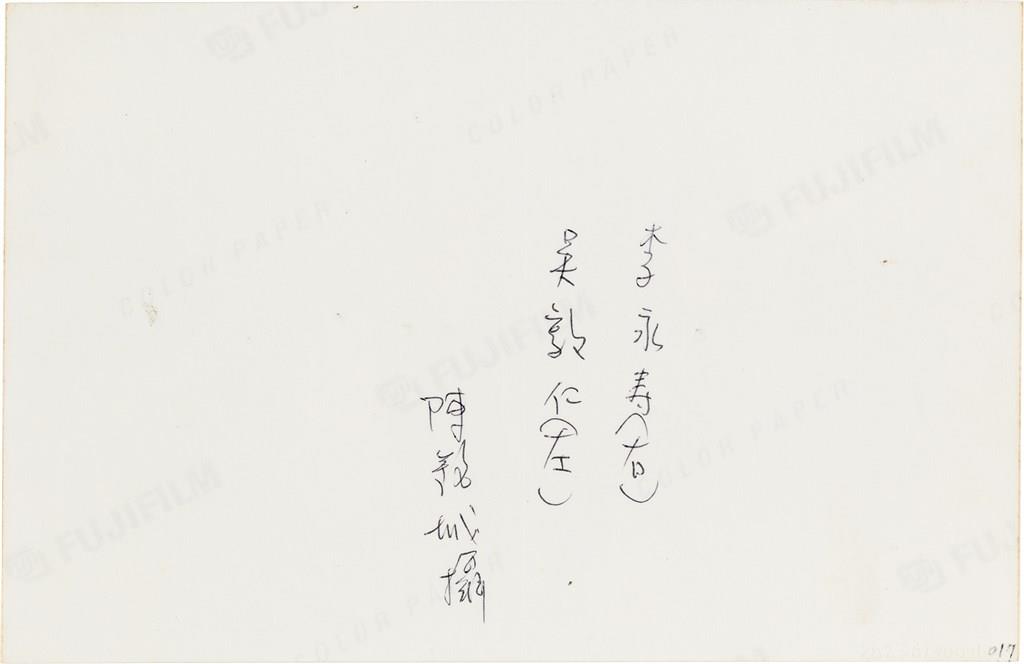 李永寿(右)
吴敦仁(左)
陳銘城攝
FUJIFILM
COLOR PAPER
FUJIFILM
COLOR PAPER
FUJIFILM
COLOR PAPER
FUJIFILM
COLOR PAPER
FUJIFILM
017